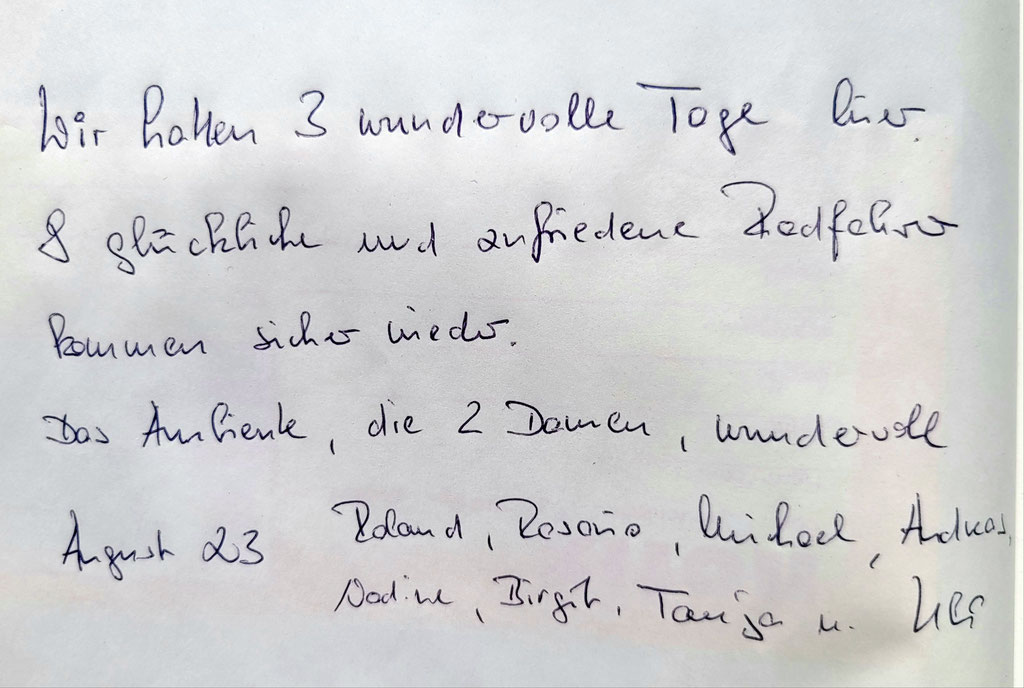 Wir hatten 3 wundervolle Tage hier.
8 glückliche und zufriedene Radfahrer
kommen sicher wieder.
Das Ambiente, die 2 Damen, wundervoll
August 23 Roland, Rosario, Michael, Andreas,
Nadine, Birgit, Tanija u. Uli